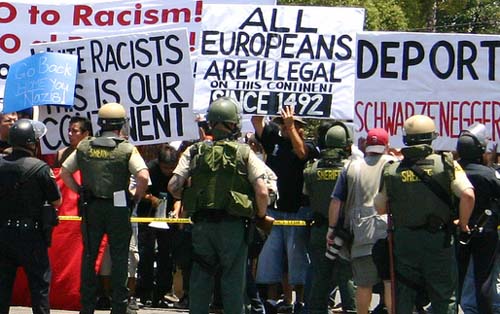 to Racism!
o al
Go Back
Nazis!
RACISTS
IS IS OUR
NENT
ALL
EUROPEANS
ARE ILLEGAL
ON THIS CONTINENT
SINCE 1492
DEPORT
SCHWARZENEGGER
SHERIFF
SHERIFF
SHERIFF